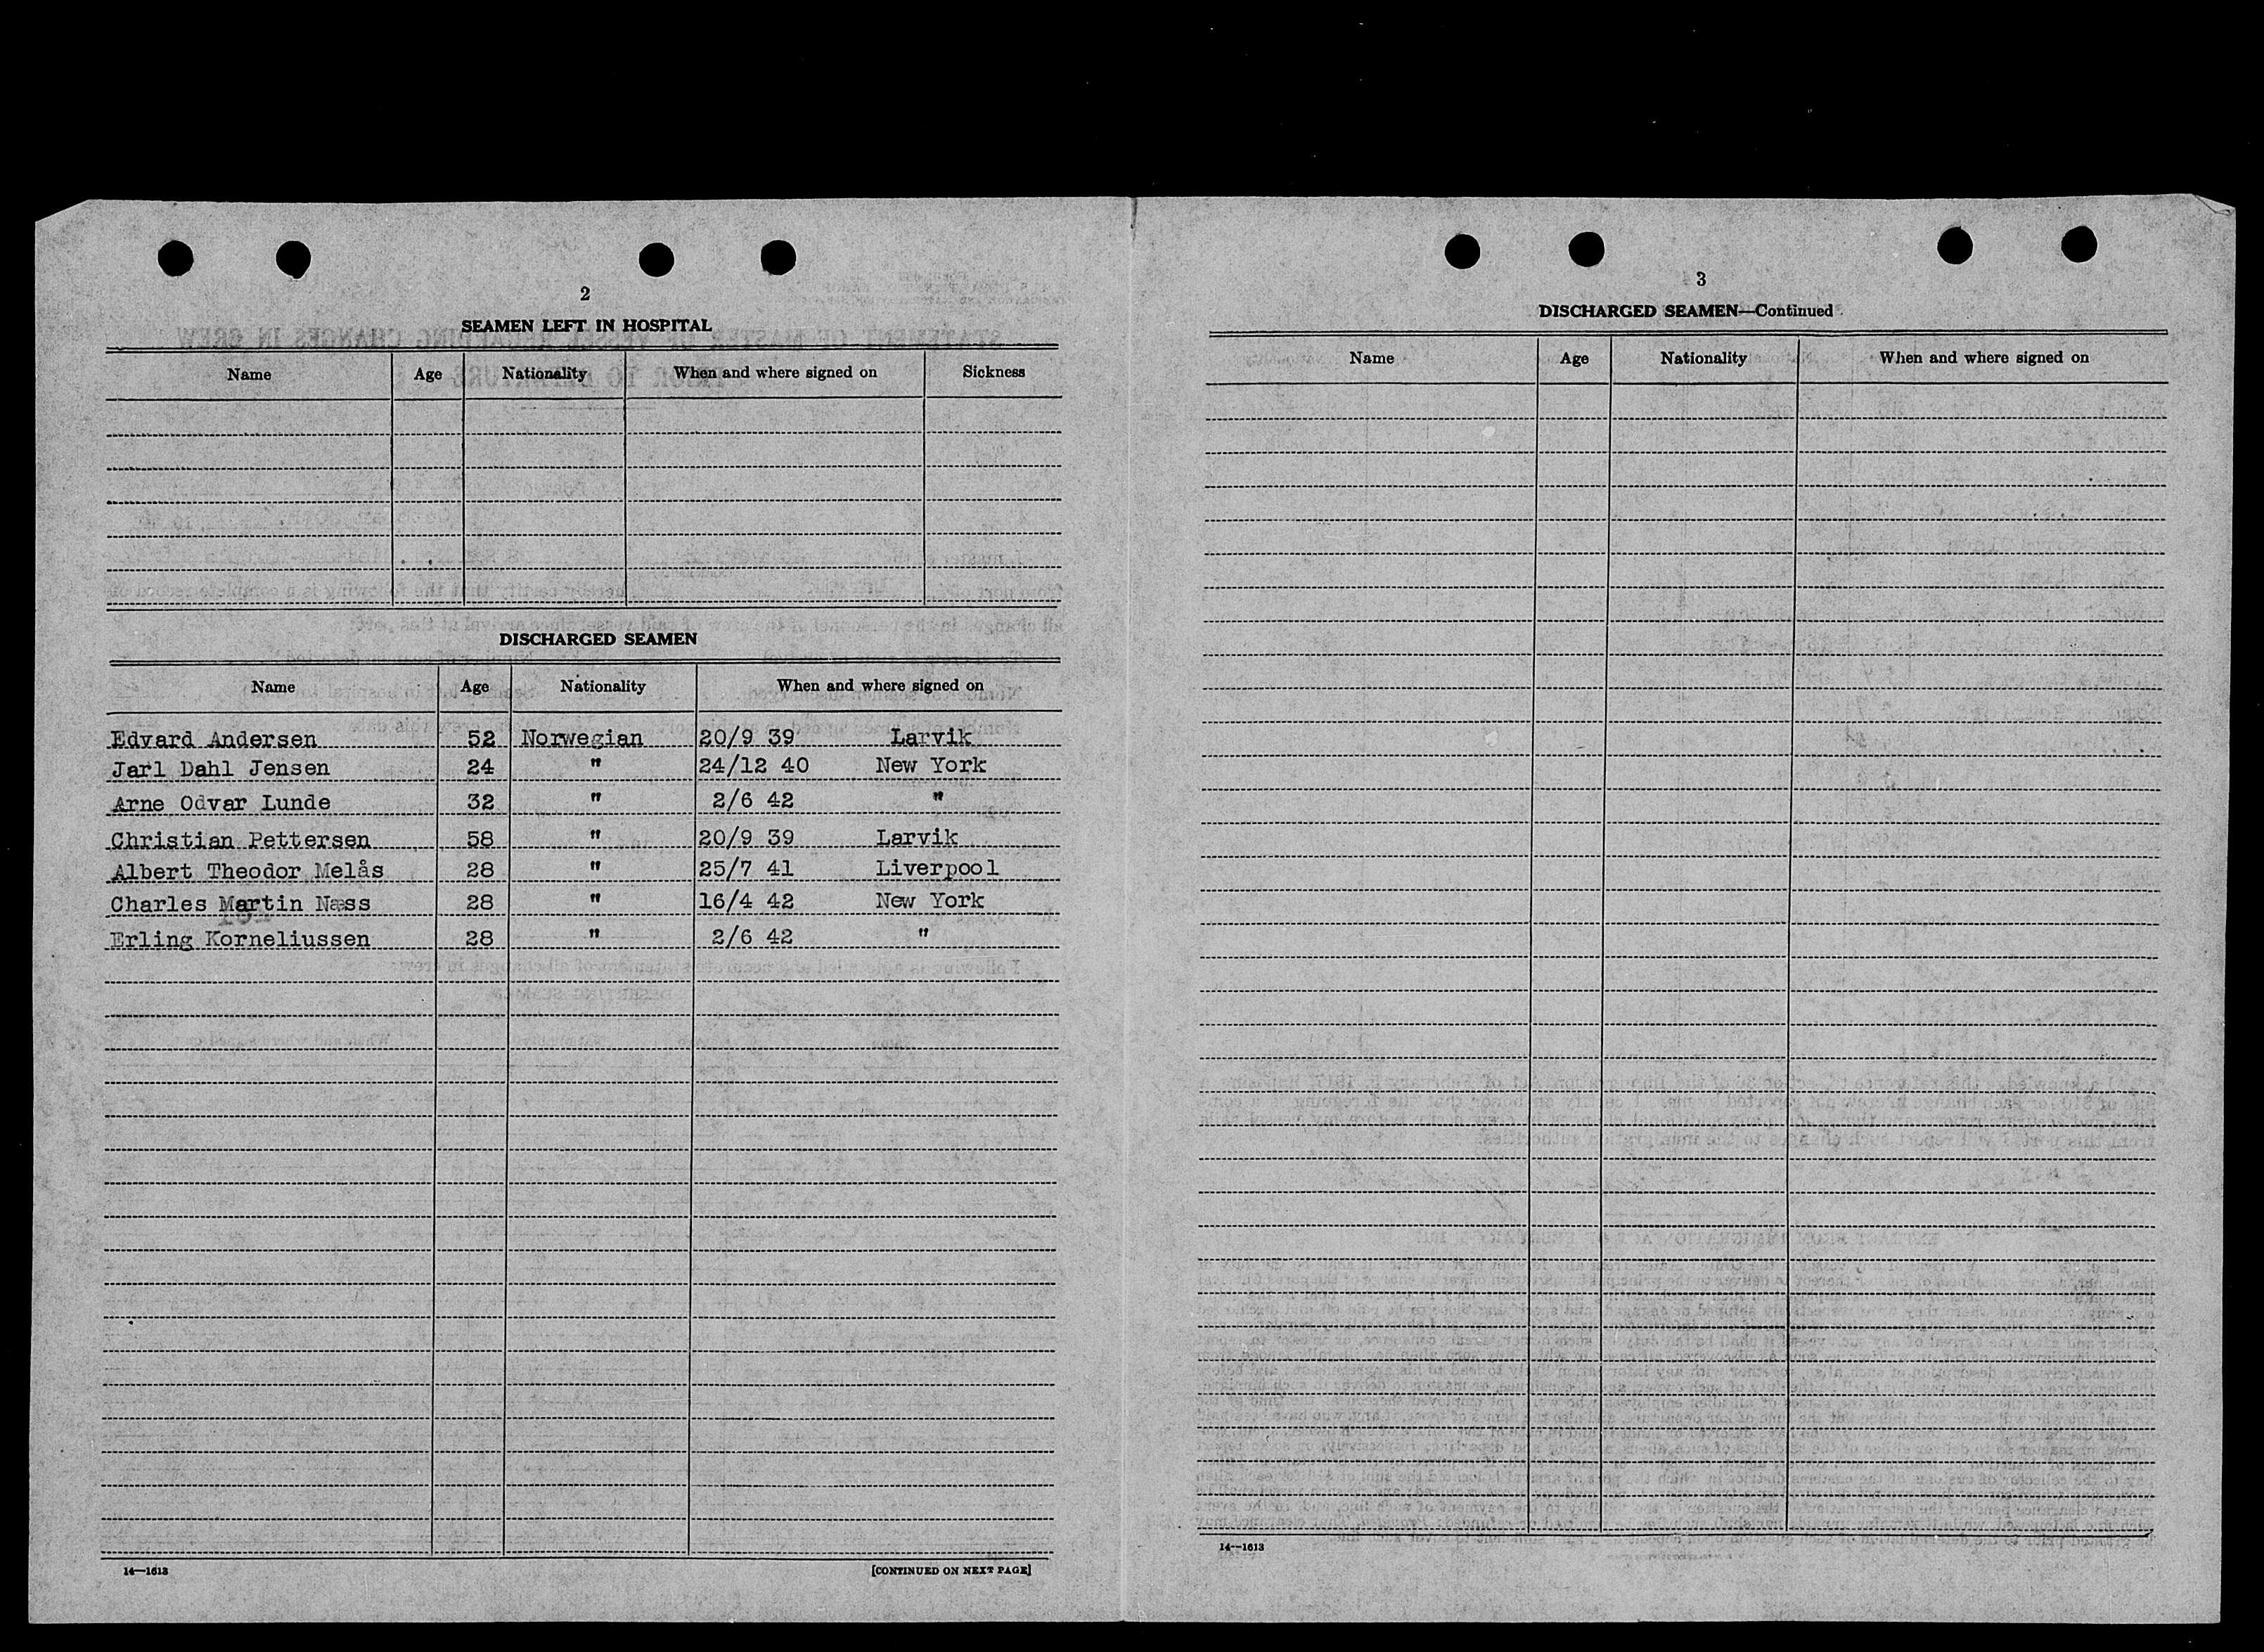 2
SEAMEN LEFT IN HOSPITAL
Name Age Nationality When and where signed on Sickness
DISCHARGED SEAMEN
Name Age Nationality When and where signed on
Edvard Andersen 52 Norwegian 20/9 39 Larvik
Jarl Dahl Jensen 24 " 24/12 40 New York
Arne Odvar Lunde 32 " 2/6 42 "
Christian Pettersen 58 " 20/9 39 Larvik
Albert Theodor Melås 28 " 25/7 41 Liverpool
Charles Martin Næss 28 " 16/4 42 New York
Erling Korneliussen 28 " 2/6 42 "
14—1613 [CONTINUED ON NEXT PAGE]
3
DISCHARGED SEAMEN—Continued
Name Age Nationality When and where signed on
14—1613